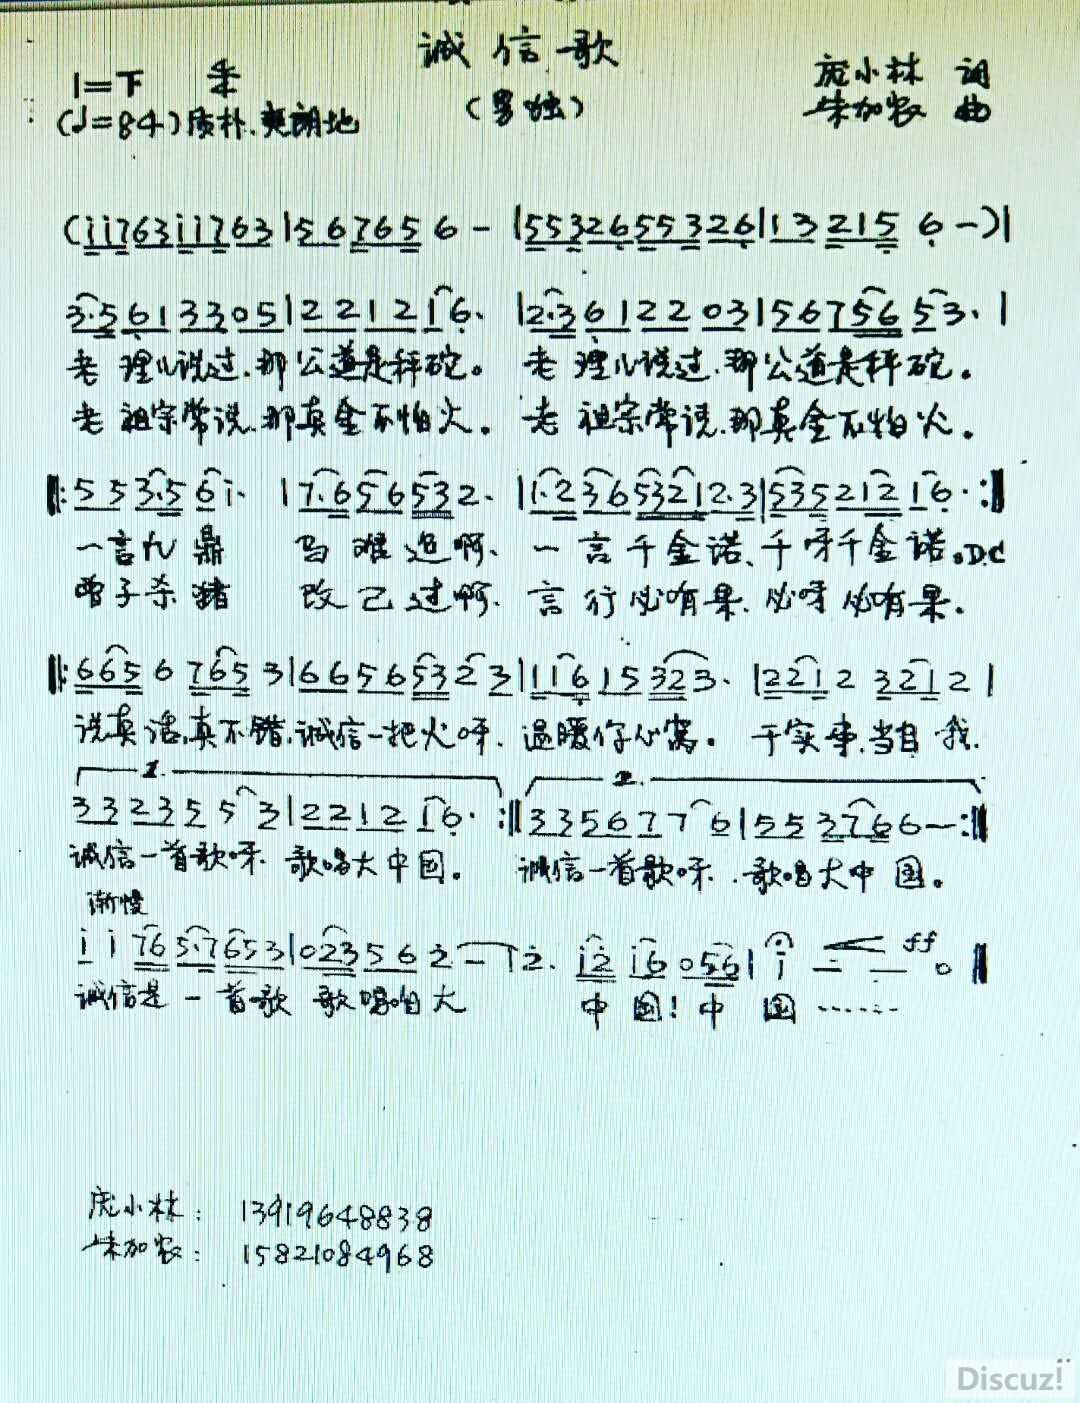 诚信歌
1=F 4/4
(♩=84)质朴.爽朗地
(男独)
庞小林 词
朱加农 曲
(i i 7 6 3 i i 7 6 3 | 5 6 7 6 5 6 - | 5 5 3 2 6 5 5 3 2 6 | 1 3 2 1 5 6 -) |
3·5 6 1 3 3 0 5 | 2 2 1 2 1 6· | 2·3 6 1 2 2 0 3 | 5 6 7 5 6 5 3· |
老理儿说过.那公道是秤砣。 老理儿说过.那公道是秤砣。
老祖宗常说.那真金不怕火。 老祖宗常说.那真金不怕火。
‖: 5 5 3·5 6 i· | 7·6 5 6 5 3 2· | 1·2 3 6 5 3 2 1 2·3 | 5 3 5 2 1 2 1 6· :‖
一言九鼎 马难追啊、 一言千金诺、千呀千金诺。D.C
曾子杀猪 改己过啊. 言行必有果.必呀必有果。
‖: 6 6 5 6 7 6 5 3 | 6 6 5 6 5 3 2 3 | 1 1 6 1 5 3 2 3· | 2 2 1 2 3 2 1 2 |
说真话,真不错.诚信一把火呀. 温暖你心窝。 干实事.当自我.
1. 2.
3 3 2 3 5 5 3 | 2 2 1 2 1 6· :‖ 3 3 5 6 7 7 6 | 5 5 3 7 6 6 - :‖
诚信一首歌呀. 歌唱大中国。 诚信一首歌呀. 歌唱大中国。
渐慢
i i 7 6 5·7 6 5 3 | 0 2 3 5 6 2 - | 2· i 2 i 6 0 5 6 | i - - 0 ‖
ff
诚信是一首歌 歌唱咱大 中国! 中国……
庞小林: 13919648838
朱加农: 15821084968
Discuz!